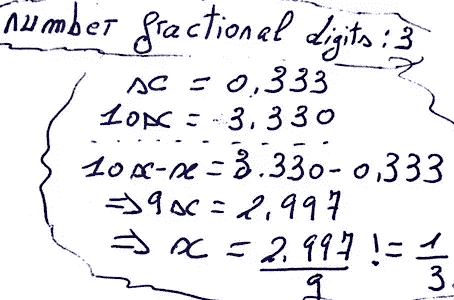 number fractional digits: 3
x = 0,333
10x = 3.330
10x-x = 3.330-0,333
⇒ 9x = 2,997
⇒ x = 2.997/9 != 1/3.